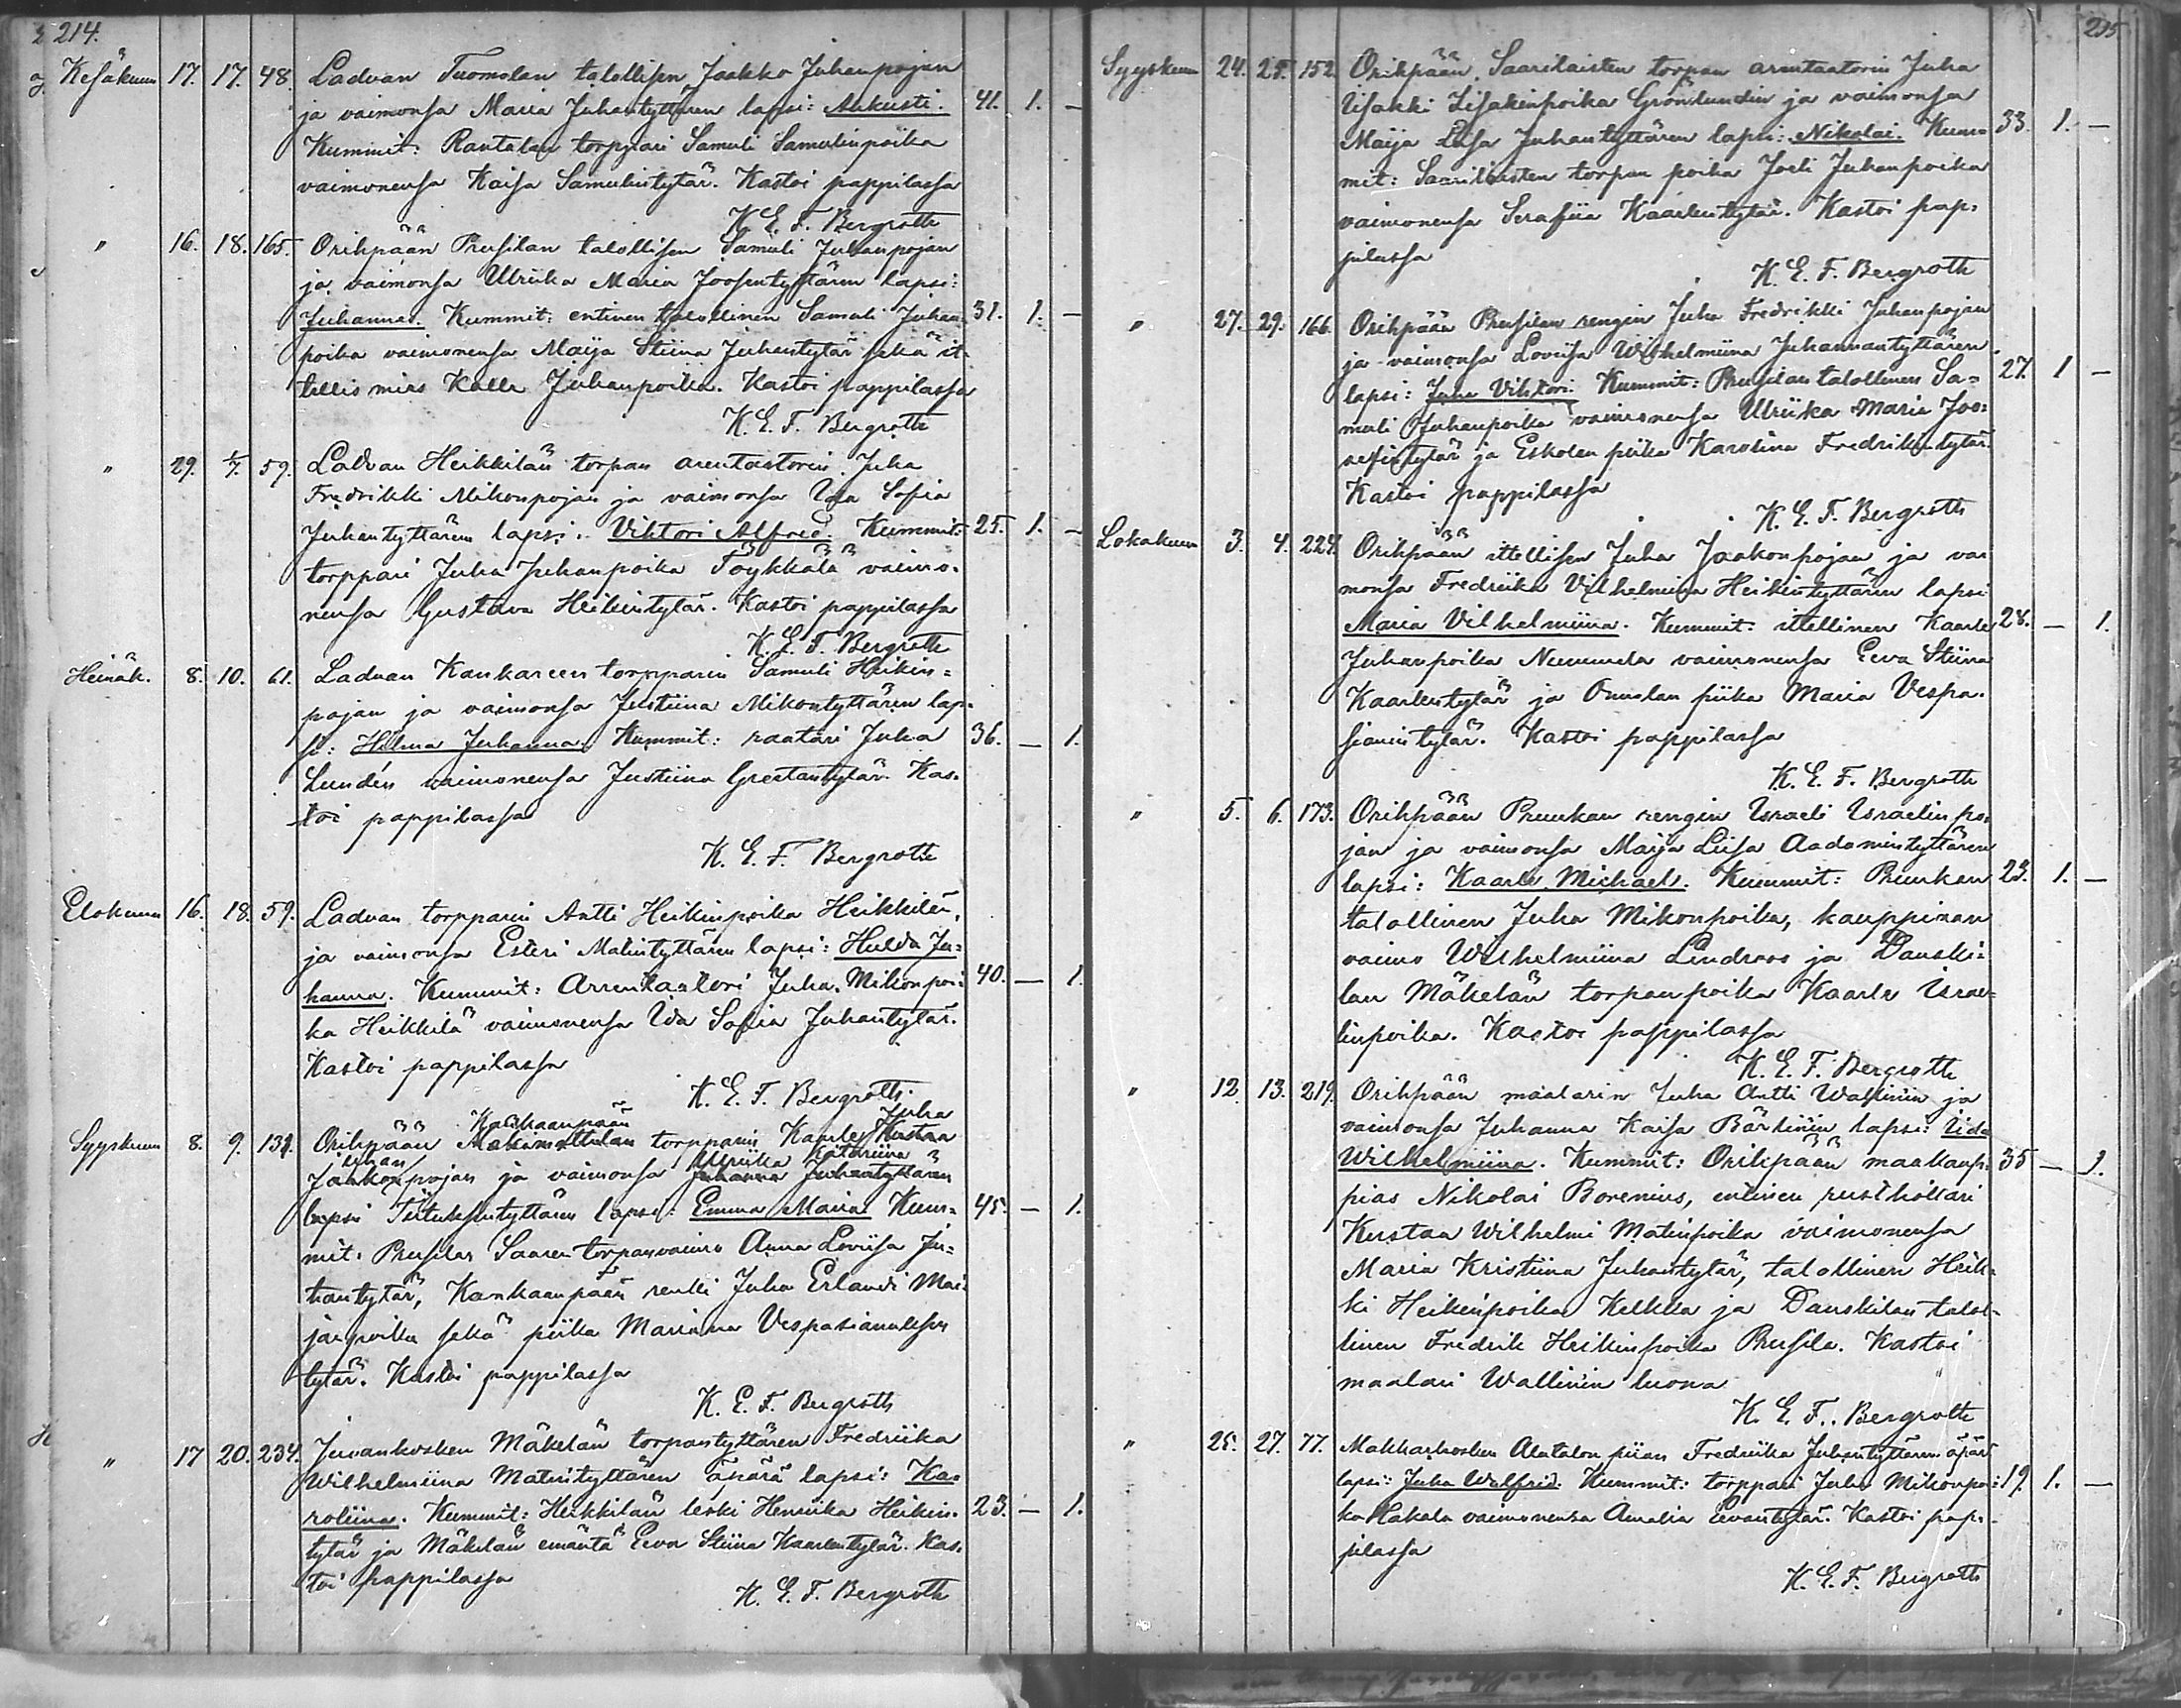 214.
Kesäkuun 17. 17. 48. Laduan Tuomolan talollisen Jaakko Juhanpojan
ja vaimonsa Maria Juhantyttären lapsi: Aukusti. 41. 1. –
Kummit: Rantalan torppari Samuli Samulinpoika
vaimonensa Kaisa Samulintytär. Kastoi pappilassa
K. E. F. Bergroth
" 16. 18. 165. Orihpään Prusilan talollisen Samuli Juhanpojan
ja vaimonsa Ulriika Maria Joosentyttären lapsi:
Juhannes. Kummit: entinen talollinen Samuli Juhan- 31. 1. –
poika vaimonensa Maija Stiina Juhantytär sekä it-
tellis mies Kalle Juhanpoika. Kastoi pappilassa
K. E. F. Bergroth
" 29. 1/7. 59. Laduan Heikkilän torpan arentaatorin Juha
Fredrikki Mikonpojan ja vaimonsa Ida Sofia
Juhantyttären lapsi: Viktori Alfred. Kummit: 25. 1. –
torppari Juha Juhanpoika Töykkälä vaimo-
nensa Gustava Heikintytär. Kastoi pappilassa
K. E. F. Bergroth
Heinäk. 8. 10. 61. Laduan Kankareen torpparin Samuli Heikin-
pojan ja vaimonsa Justiina Mikontyttären lap-
si: Hilma Juhanna. Kummit: raatari Juha 36. – 1.
Lundén vaimonensa Justiina Gretantytär. Kas-
toi pappilassa
K. E. F. Bergroth
Elokuun 16. 18. 59. Laduan torpparin Antti Heikinpoika Heikkilän,
ja vaimonsa Esteri Matintyttären lapsi: Hulda Ju-
hanna. Kummit: Arrentaatori Juha Mikonpoi- 40. – 1.
ka Heikkilä vaimonensa Ida Sofia Juhantytär.
Kastoi pappilassa
K. E. F. Bergroth.
Kankaanpään Juha
Syyskuun 8. 9. 131. Orihpään torpparin Kaarle Kustaa
Juhan Ulriika Katariina
Jaakonpojan ja vaimonsa Juhanna Juhantyttären
lapsi Tiituksentyttären lapsi: Emma Maria. Kum- 45. – 1.
mit: Prusilan Saaren torpanvaimo Anna Loviisa Ju-
hantytär, Kankaanpään renki Juha Erlandi Mat-
inpoika sekä piika Mariana Vespasianuksen
tytär. Kastoi pappilassa
K. E. F. Bergroth
" 17 20. 234. Juvankosken Mäkelän torpantyttären Fredriika
Wilhelmiina Matintyttären äpärä lapsi: Ka-
roliina. Kummit: Heikkilän leski Henriika Heikin- 23. – 1.
tytär ja Mäkelän emäntä Eeva Stiina Kaarlentytär. Kas-
toi pappilassa
K. E. F. Bergroth
215
Syyskuun 24. 25. 152. Orihpään Saarilaisten torpan arentaatorin Juha
Iisakki Iisakinpoika Grönlundin ja vaimonsa
Maija Liisa Juhantyttären lapsi: Nikolai. Kum- 33. 1. –
mit: Saarilaisten torpan poika Joeli Juhanpoika
vaimonensa Serafiia Kaarlentytär. Kastoi pap-
pilassa
K. E. F. Bergroth
" 27. 29. 166. Orihpään Prusilan rengin Juha Fredrikki Juhanpojan
ja vaimonsa Loviisa Wilhelmiina Juhannantyttären
lapsi: Juha Viktori. Kummit: Prusilan talollinen Sa- 27. 1 –
muli Juhanpoika vaimonensa Ulriika Maria Joo-
sefintytär ja Eskolan piika Karolina Fredrikintytär.
Kastoi pappilassa
K. E. F. Bergroth
Lokakuun 3. 4. 224. Orihpään ittellisen Juha Jaakonpojan ja vai
monsa Fredriika Vilhelmiina Heikintyttären lapsi
Maria Vilhelmiina. Kummit: ittellinen Kaarle 28. – 1.
Juhanpoika Nummela vaimonensa Eeva Stiina
Kaarlentytär ja Onnelan piika Maria Vespa-
sianintytär. Kastoi pappilassa
K. E. F. Bergroth
" 5. 6. 173. Orihpään Pruukan rengin Israeli Israelinpo-
jan ja vaimonsa Maija Liisa Aadamintyttären
lapsi: Kaarle Michael. Kummit: Pruukan 23. 1. –
talollinen Juha Mikonpoika, kauppiaan
vaimo Wilhelmiina Lindroos ja Danski-
lan Mäkelän torpanpoika Kaarle Israe-
linpoika. Kastoi pappilassa
K. E. F. Bergroth
" 12. 13. 219. Orihpään maalarin Juha Antti Wallinin ja
vaimonsa Juhanna Kaisa Bärlinin lapsi: Iida
Wilhelmiina. Kummit: Orihpään maakaup- 35 – 1.
pias Nikolai Borenius, entinen rusthollari
Kustaa Wilhelmi Matinpoika vaimonensa
Maria Kristiina Juhantytär, talollinen Heik-
ki Heikinpoika Kelkka ja Danskilan talol-
linen Fredrik Heikinpoika Prusila. Kastoi
maalari Wallinin luona
K. E. F. Bergroth
" 25. 27. 77. Makkarkosken Alatalon piian Fredriika Juhantyttären äpärä
lapsi: Juha Walfrid. Kummit: torppari Juha Mikonpoi- 19. 1. –
ka Hakala vaimonensa Amalia Eevantytär. Kastoi pap-
pilassa
K. E. F. Bergroth